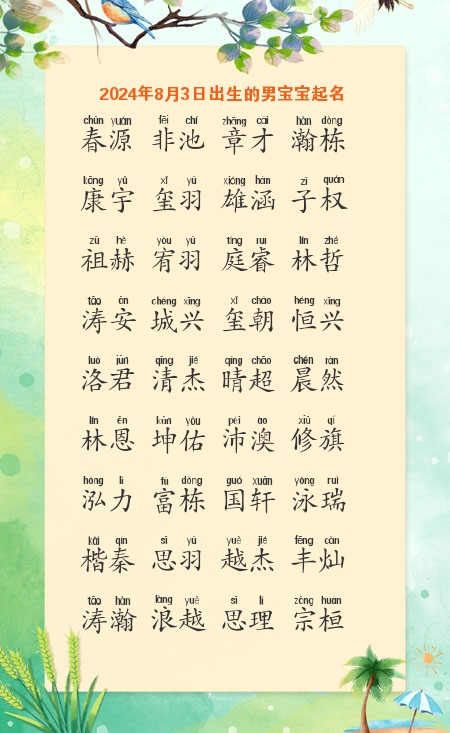 2024年8月3日出生的男宝宝起名
chūn yuán fēi chí zhāng cái hàn dòng
春源 非池 章才 瀚栋
kāng yǔ xǐ yǔ xióng hán zǐ quán
康宇 玺羽 雄涵 子权
zǔ hè yòu yǔ tíng ruì lín zhé
祖赫 宥羽 庭睿 林哲
tāo ān chéng xīng xǐ cháo héng xīng
涛安 城兴 玺朝 恒兴
luò jūn qīng jié qíng chāo chén rán
洛君 清杰 晴超 晨然
lín ēn kūn yòu pèi ào xiū qí
林恩 坤佑 沛澳 修旗
hóng lì fù dòng guó xuān yǒng ruì
泓力 富栋 国轩 泳瑞
kǎi qín sī yǔ yuè jié fēng càn
楷秦 思羽 越杰 丰灿
tāo hàn làng yuè sī lǐ zōng huán
涛瀚 浪越 思理 宗桓